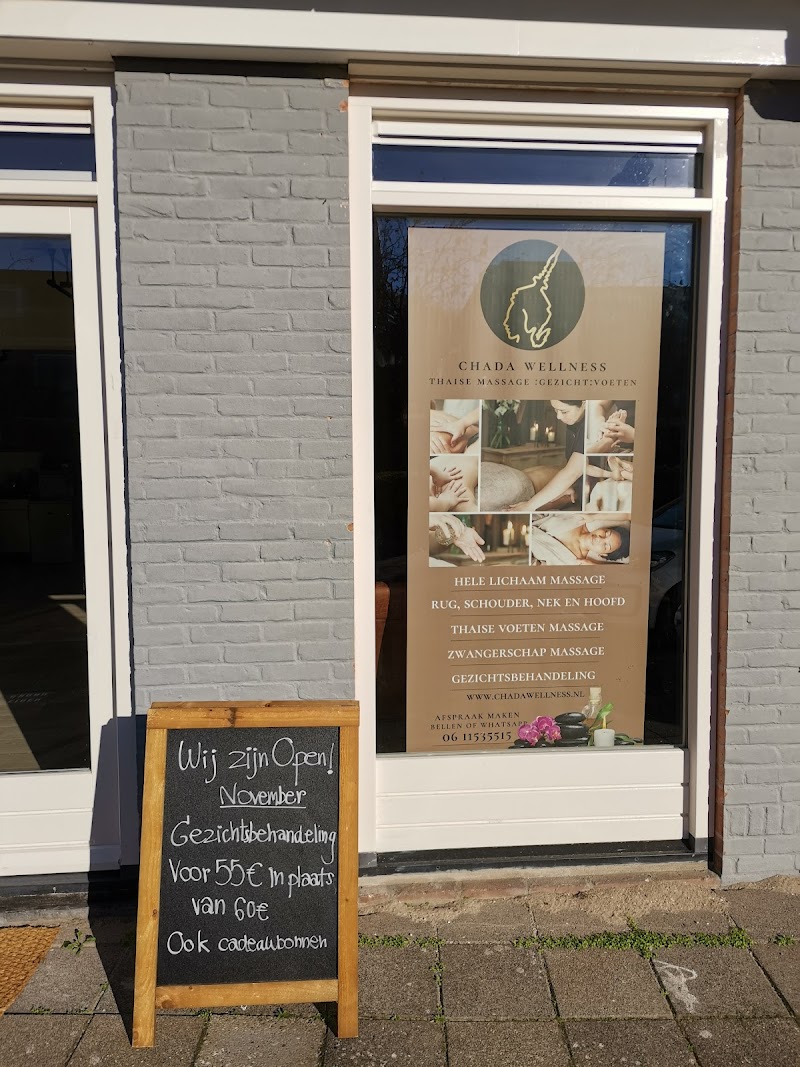 CHADA WELLNESS
THAISE MASSAGE :GEZICHT:VOETEN
HELE LICHAAM MASSAGE
RUG, SCHOUDER, NEK EN HOOFD
THAISE VOETEN MASSAGE
ZWANGERSCHAP MASSAGE
GEZICHTSBEHANDELING
WWW.CHADAWELLNESS.NL
AFSPRAAK MAKEN
BELLEN OF WHATSAPP
06 11535515
Wij zijn Open!
November
Gezichtsbehandeling
Voor 55€ In plaats
van 60€
Ook cadeaubonnen